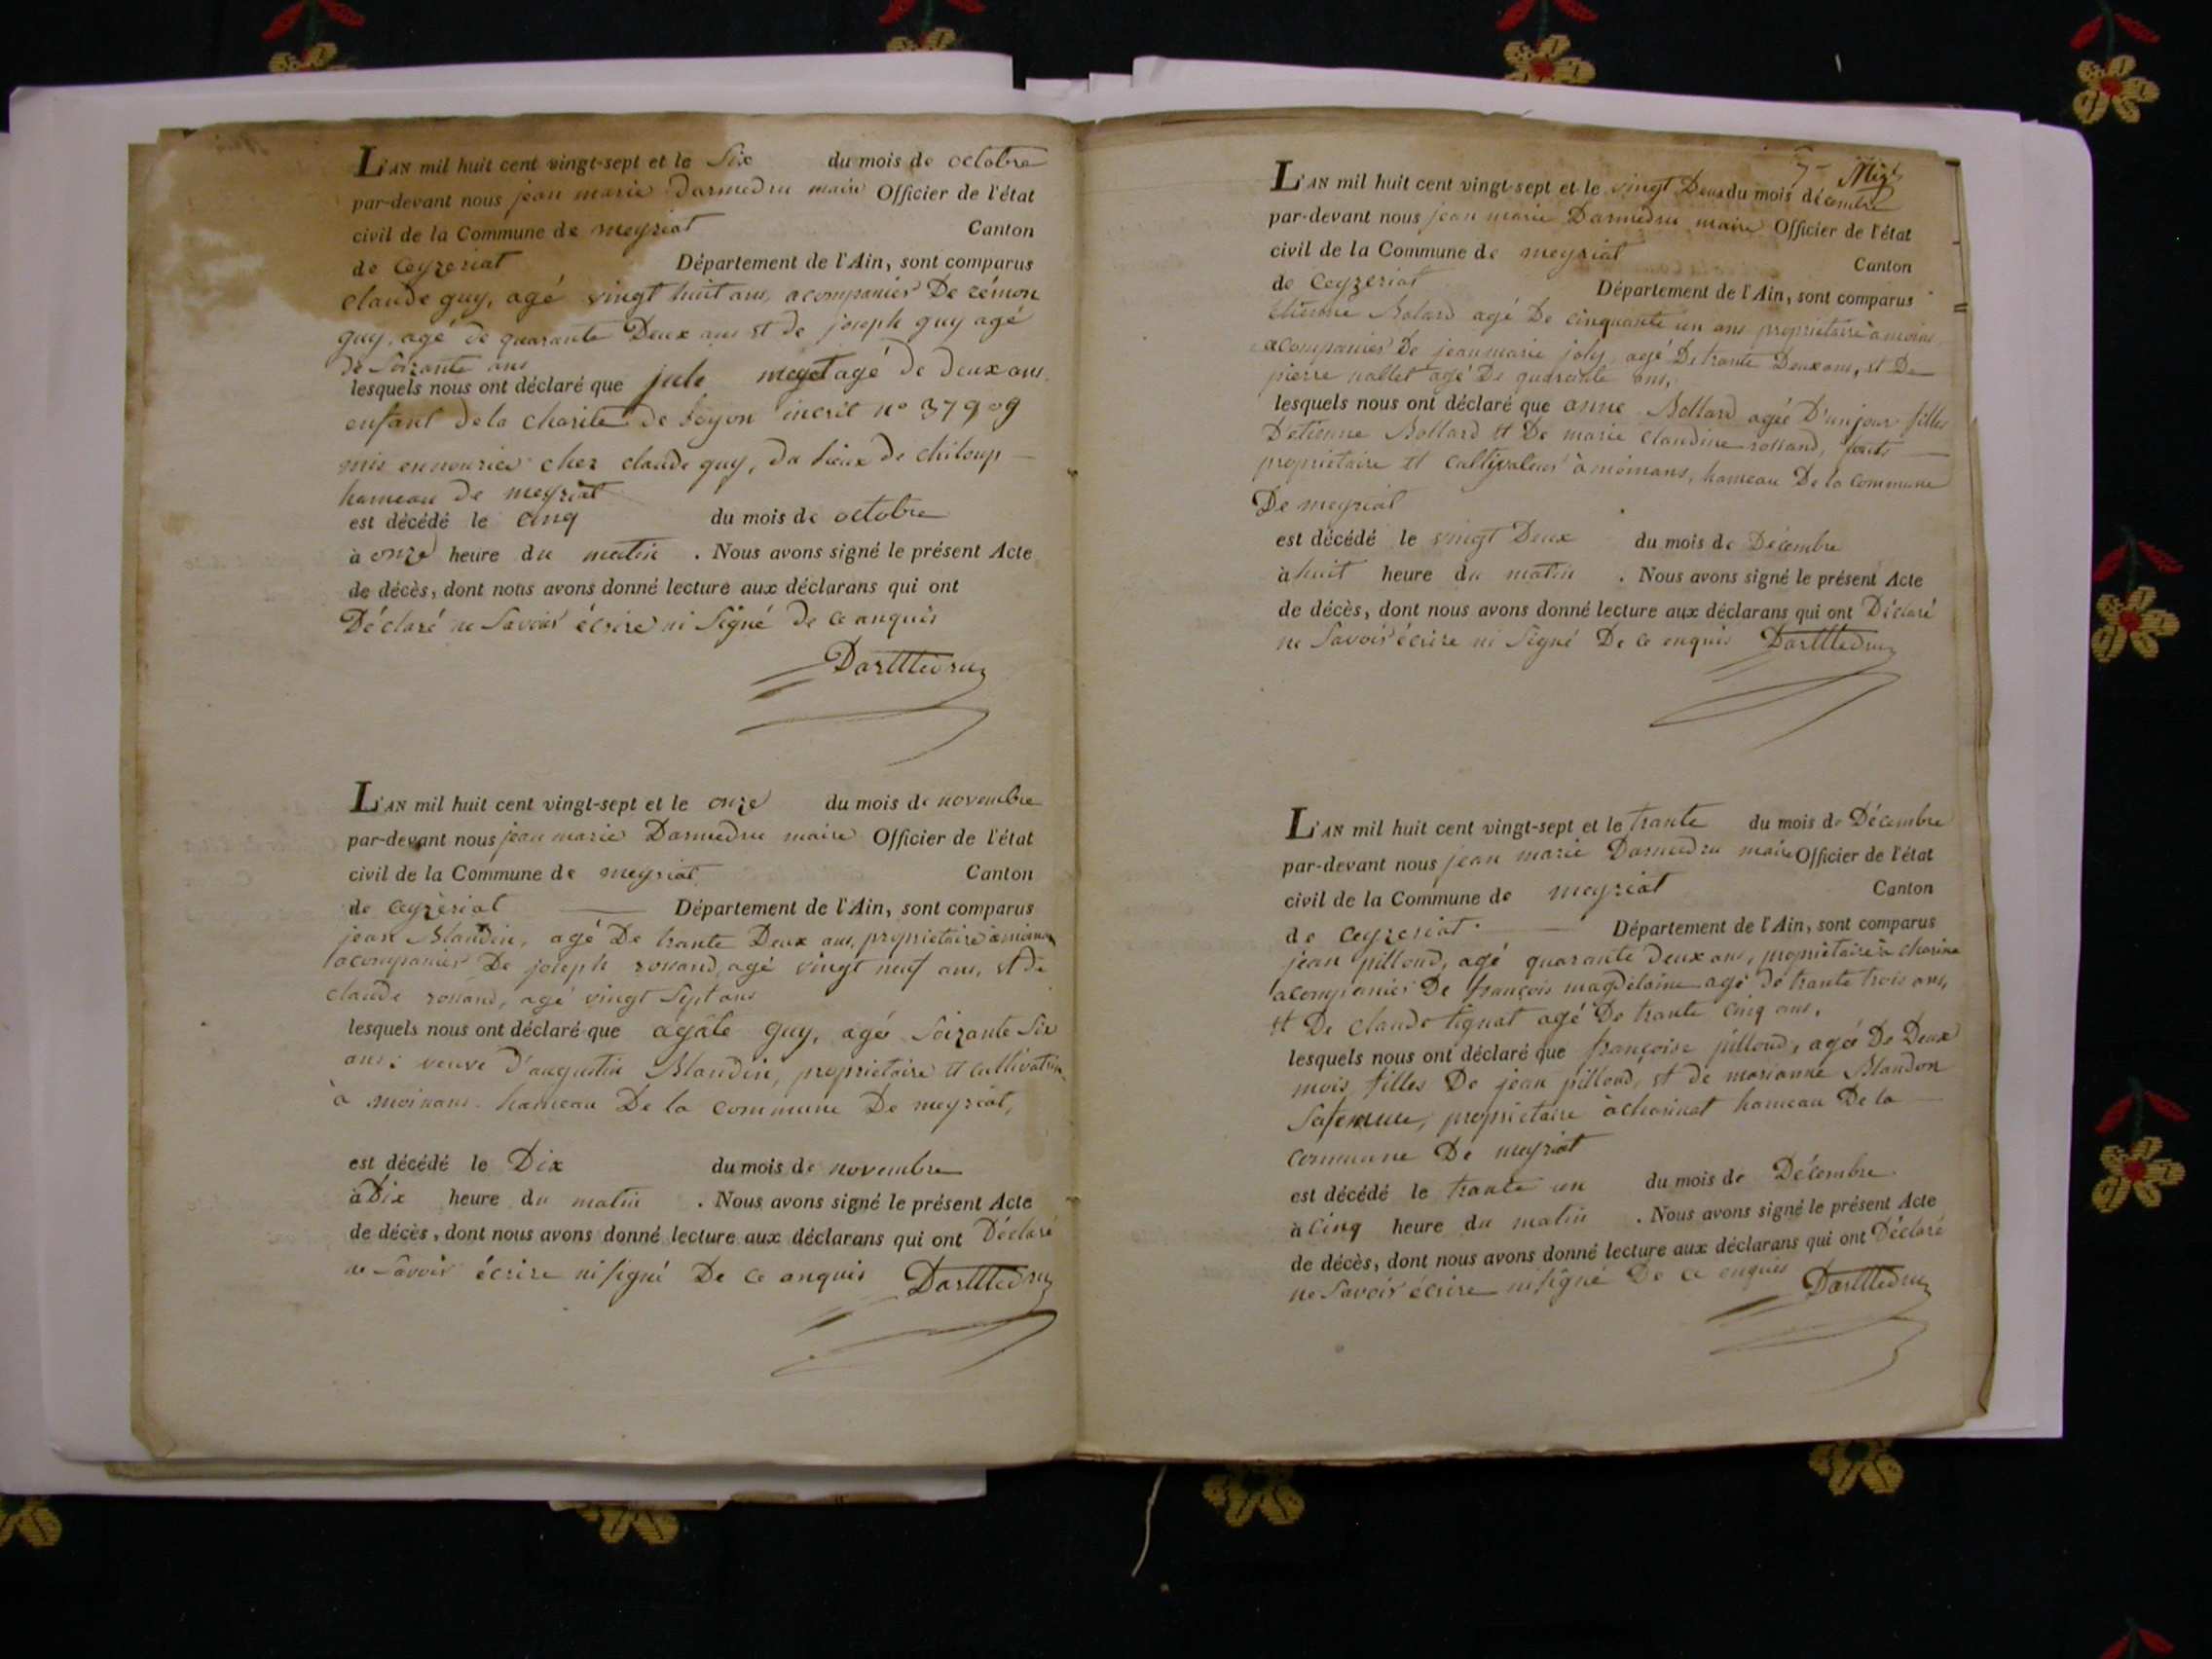 L'AN mil huit cent vingt-sept et le Six du mois de octobre
par-devant nous jean marie darmedru maire Officier de l'état
civil de la Commune de meyriat Canton
de Ceyzeriat Département de l'Ain, sont comparus
claude guy, agé vingt huit ans, acompanier De rémon
guy, agé de quarante Deux ans et de joseph guy agé
de Soixante ans
lesquels nous ont déclaré que jule meyet agé de deux ans
enfant de la charite de Loyon incrit no 37909
mis en nourice chez claude guy, du Lieux de chiloup
hameau de meyriat
est décédé le cinq du mois de octobre
à onze heure du matin . Nous avons signé le présent Acte
de décès, dont nous avons donné lecture aux déclarans qui ont
Déclaré ne Savoir écrire ni Signé de ce anquis
Darmedru
L'AN mil huit cent vingt-sept et le onze du mois de novembre
par-devant nous jean marie Darmedru maire Officier de l'état
civil de la Commune de meyriat Canton
de ceyzèriat Département de l'Ain, sont comparus
jean Blandin, agé De trante Deux ans, propriétaire à
acompanier De joseph rossand, agé vingt neuf ans, et de
claude rossand, agé vingt Sept ans
lesquels nous ont déclaré que agate guy, agé Soizante Six
ans: veuve d'augustin Blandin, proprietaire et cultivatrice
à moinans hameau De la commune De meyriat,
est décédé le Dix du mois de novembre
à Dix heure du matin . Nous avons signé le présent Acte
de décès, dont nous avons donné lecture aux déclarans qui ont Déclaré
ne Savoir écrire ni signé De ce anquis Darmedru
L'AN mil huit cent vingt-sept et le vingt Deux du mois décembre
par-devant nous jean marie Darmedru maire Officier de l'état
civil de la Commune de meyriat Canton
de Ceyzeriat Département de l'Ain, sont comparus
étienne Bolard agé De cinquante un ans propriétaire à
acompanier De jean marie joly, agé De trante Deux ans, et De
pierre nallet agé De quarante ans,
lesquels nous ont déclaré que anne Bollard agée D'un jour filles
D'etienne Bollard et De marie claudine rossand,
propriétaire et cultivateur à moinans, hameau De la commune
De meyriat
est décédé le vingt Deux du mois de Décembre
à huit heure du matin . Nous avons signé le présent Acte
de décès, dont nous avons donné lecture aux déclarans qui ont Déclaré
ne Savoir écrire ni Signé De ce enquis Darmedru
L'AN mil huit cent vingt-sept et le trante du mois de Décembre
par-devant nous jean marie Darmedru maire Officier de l'état
civil de la Commune de meyriat Canton
de Ceyzeriat. Département de l'Ain, sont comparus
jean pilloud, agé quarante deux ans, propriétaire à
acompanier De françois magdelaine agé de trante trois ans,
et De claude tignat agé De trante Cinq ans,
lesquels nous ont déclaré que françoise pilloud, agée De Deux
mois, filles De jean pilloud, et de marianne Blandon
Safemme, propriétaire à charinat hameau De la
commune De meyriat
est décédé le trante un du mois de Décembre
à Cinq heure du matin . Nous avons signé le présent Acte
de décès, dont nous avons donné lecture aux déclarans qui ont Déclaré
ne Savoir écrire ni signé De ce enquis Darmedru